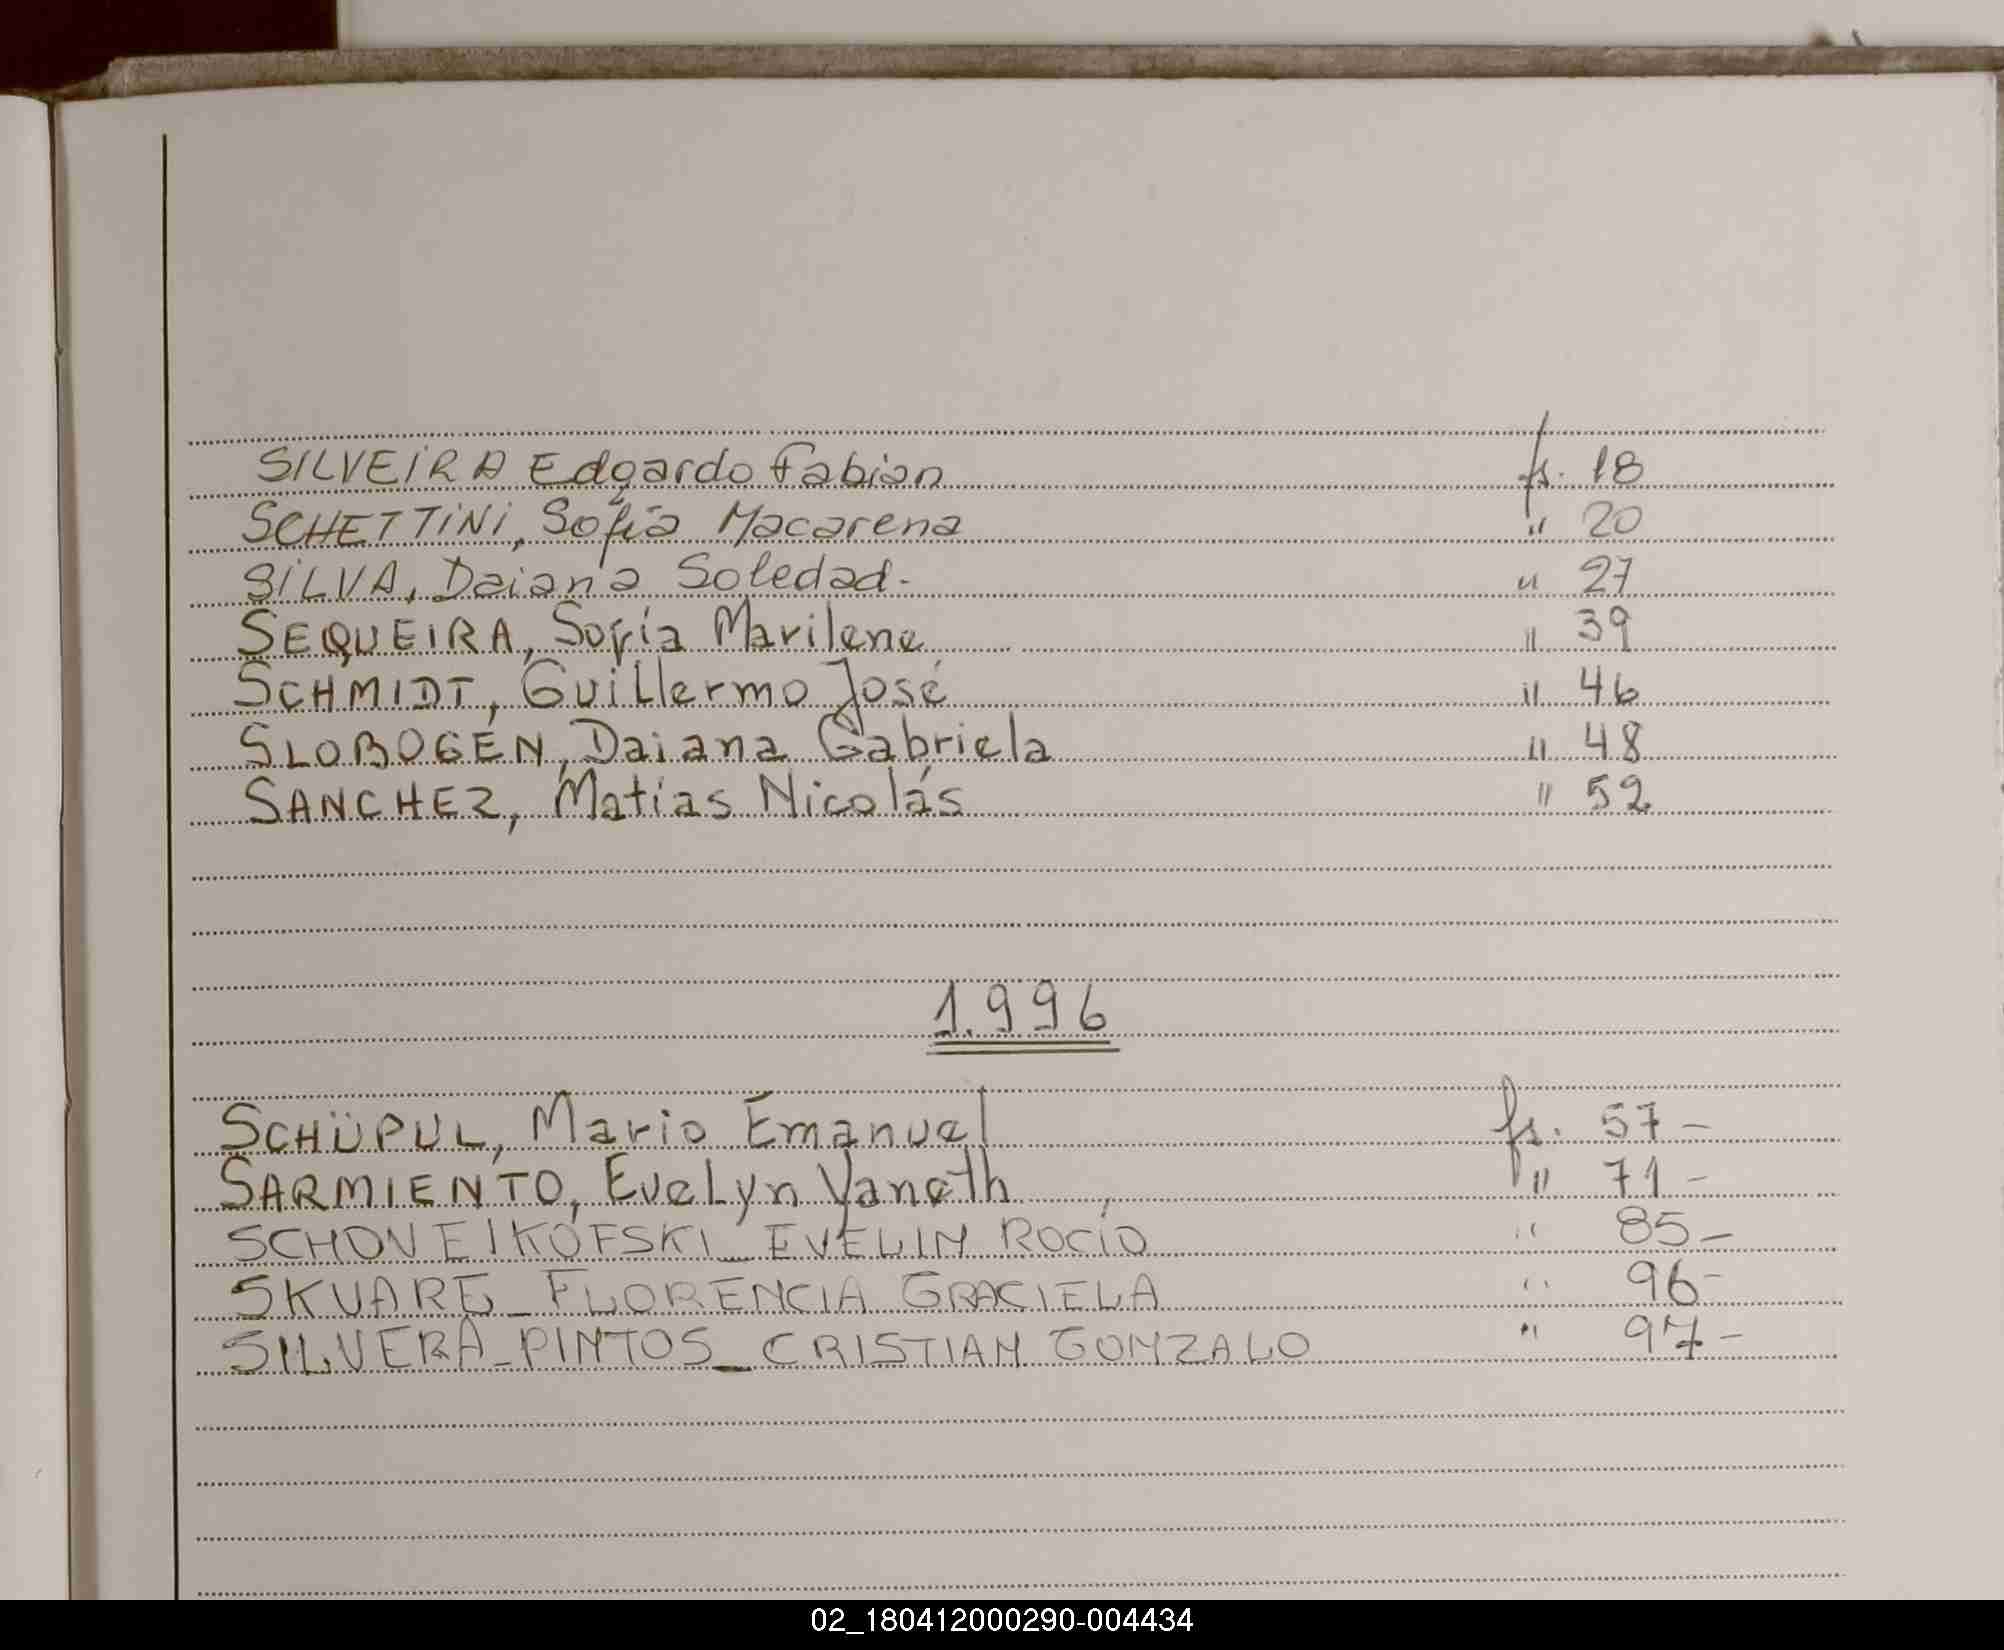 SILVEIRA Edgardo Fabian fs. 18
SCHETTINI, Sofía Macarena " 20
SILVA, Daiana Soledad- " 27
SEQUEIRA, Sofía Marilene " 39
SCHMIDT, Guillermo José " 46
SLOBOGEN, Daiana Gabriela " 48
SANCHEZ, Matías Nicolás " 52
1.996
SCHÜPUL, Mario Emanuel fs. 57-
SARMIENTO, Evelyn Yaneth " 71-
SCHONEIKOFSKI_EVELIN ROCIO " 85-
SKVARE_FLORENCIA GRACIELA " 96-
SILVERA_PINTOS_CRISTIAN GONZALO " 97-
02_180412000290-004434